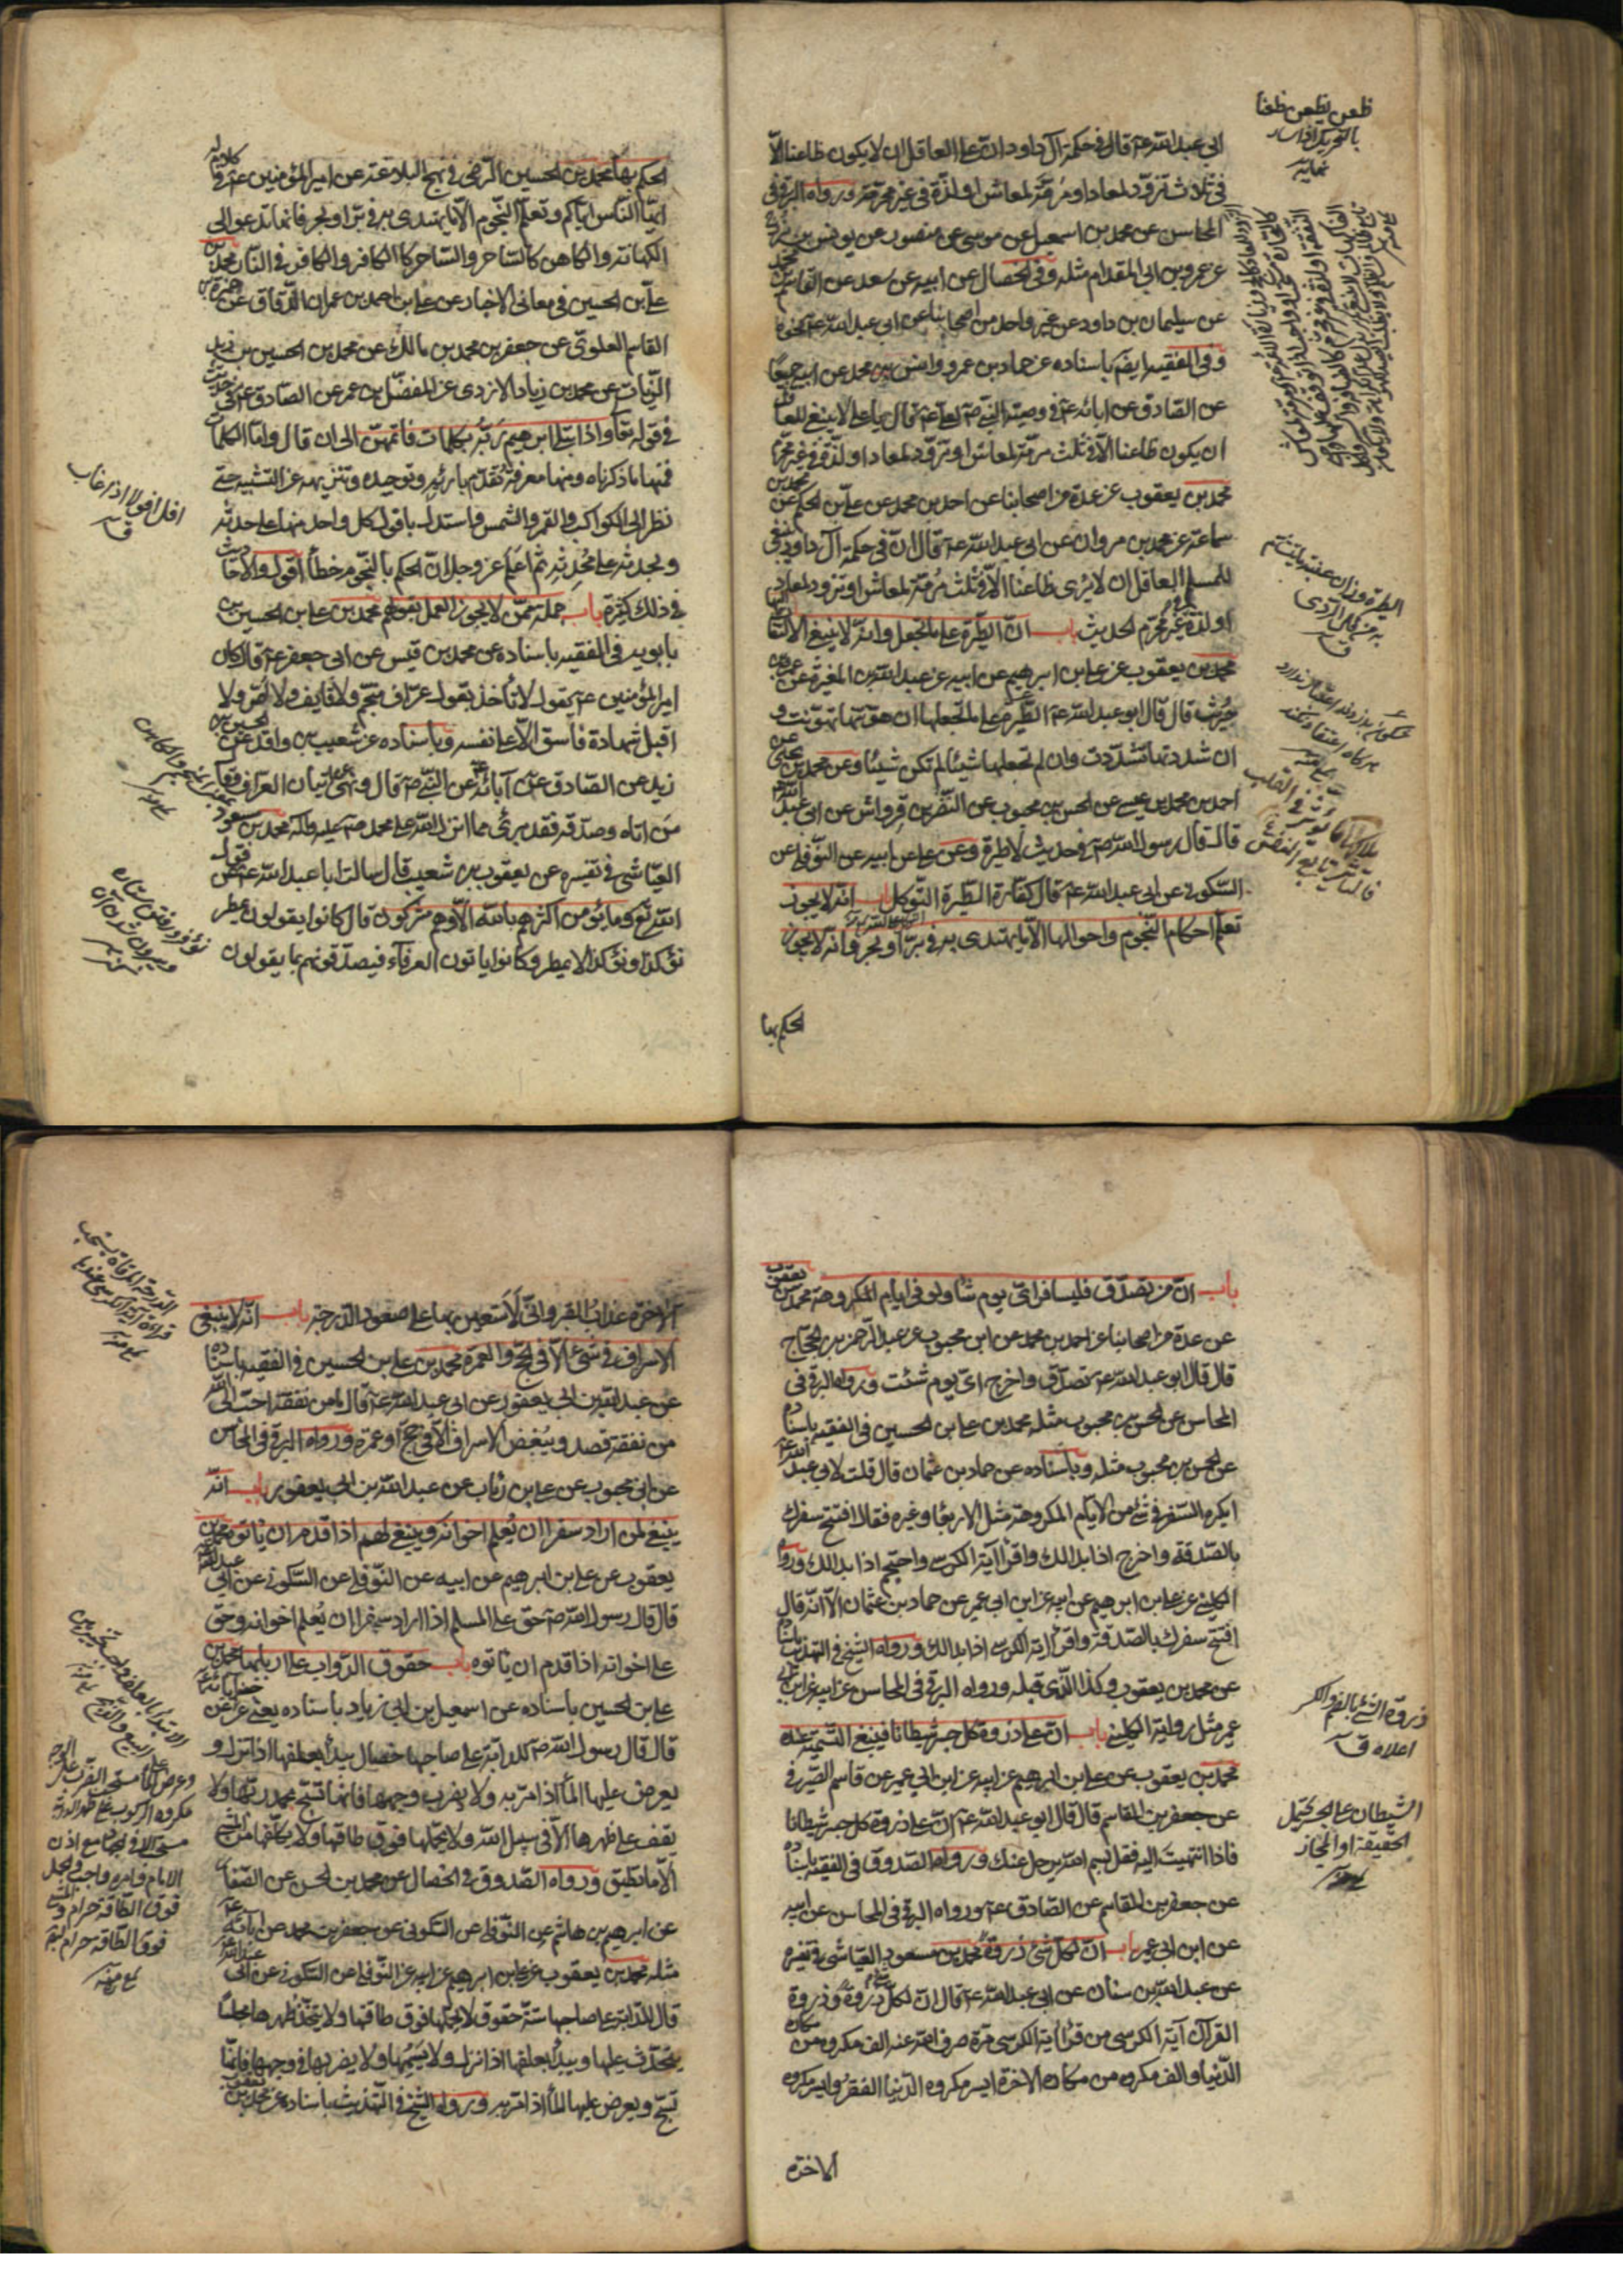 ابی عبد الله عـ قال فی حکمة آل داود ان علی العاقل ان لا یکون ظاعنا الّا
فی ثلاث تزوّد لمعاد او مرمّة لمعاش او لذّة فی غیر محرّم ورواه البرقی فی
المحاسن عن محمد بن اسمعیل عن موسی عن منصور عن یونس بن
عن عمرو بن ابی المقدام مثله وفی الخصال عن ابیه عن سعد عن القاسم بن محمد
عن سلیمان بن داود عن غیر واحد من اصحابنا عن ابی عبد الله عـ نحوه
وفی الفقیه ایضا باسناده عن حماد بن عمرو وانس بن محمد عن ابیه جمیعا
عن الصادق عن ابائه عـ فی وصیة النبی صـ لعلی عـ قال یا علی لا ینبغی للعاقل
ان یکون ظاعنا الّا فی ثلث مرمّة لمعاش او تزوّد لمعاد او لذّة فی غیر محرّم
محمد بن یعقوب عن عدة من اصحابنا عن احمد بن محمد عن علی بن الحکم عن
سماعة عن محمد بن مروان عن ابی عبد الله عـ قال ان فی حکمة آل داود ینبغی
للمسلم العاقل ان لا یُری ظاعنا الّا فی ثلث مرمّة لمعاش او تزود لمعاد
او لذة فی غیر محرم الحدیث باب انّ الطیرة علی ما تجعل وانه لا ینبغی الالتفات الیها
محمد بن یعقوب عن علی بن ابرهیم عن ابیه عن عبد الله بن المغیرة عن عمرو بن
حُریث قال قال ابو عبد الله عـ الطیرة علی ما تجعلها ان هوّنتها تهوّنت و
ان شددتها تشدّدت وان لم تجعلها شیئا لم تکن شیئا وعن محمد بن یحیی عن
احمد بن محمد بن عیسی عن الحسن بن محبوب عن النضر بن قرواش عن ابی عبد الله عـ
قال قال رسول الله صـ فی حدیث لا طیرة وعن علی عن ابیه عن النوفلی عن
السکونی عن ابی عبد الله عـ قال کفّارة الطیرة التوکل باب انه لا یجوز
تعلم احکام النجوم واحوالها الّا ما یهتدی به فی برّ او بحر وانه لا یجوز
الحکم بها
ظعن یظعن ظعنا
بالتحریک اذا سار
نهایه
الحکم بها محمد بن الحسین الرضی فی نهج البلاغة عن امیر المؤمنین عـ فی کلام له
ایها الناس ایاکم وتعلّم النجوم الّا ما یهتدی به فی برّ او بحر فانها تدعو الی
الکهانة والکاهن کالساحر والساحر کالکافر والکافر فی النار محمد بن
علی بن الحسین فی معانی الاخبار عن علی بن احمد بن عمران الدقاق عن حمزة بن
القاسم العلوی عن جعفر بن محمد بن مالک عن محمد بن الحسین بن زید
الزیات عن محمد بن زیاد الازدی عن المفضّل بن عمر عن الصادق عـ فی حدیث
فی قوله تعا واذ ابتلی ابرهیم ربّه بکلمات فاتمهنّ الی ان قال واما الکلمات
فمنها ما ذکرناه ومنها معرفته بقِدَم بارئه وتوحیده وتنزیهه عن التشبیه حتی
نظر الی الکواکب والقمر والشمس فاستدل بافول کل واحد منها علی حدثه
وبحدثه علی مُحدِثه ثم اعلم عز وجل ان الحکم بالنجوم خطأ اقول والاحادیث
فی ذلک کثیرة باب جملة ممن لا یجوز العمل بقولهم محمد بن علی بن الحسین بن
بابویه فی الفقیه باسناده عن محمد بن قیس عن ابی جعفر عـ قال کان
امیر المؤمنین عـ یقول لا تأخذ بقول عرّاف ولا قایف ولا لصّ ولا
اقبل شهادة فاسق الّا علی نفسه وباسناده عن شعیب بن واقد عن الحسین بن
زید عن الصادق عن آبائه عن النبی صـ قال ونهی عن اتیان العراف وقال
من اتاه وصدّقه فقد برئ مما انزل الله علی محمد صـ محمد بن مسعود
العیاشی فی تفسیره عن یعقوب بن شعیب قال سالت ابا عبد الله عـ عن قول
الله تع وما یؤمن اکثرهم بالله الّا وهم مشرکون قال کانوا یقولون یمطر
نؤ کذا ونؤ کذا لا یمطر وکانوا یاتون العرفآء فیصدّقونهم بما یقولون
افل افولا اذ غاب
ق
باب انّ من تصدّق فلیسافر ایّ یوم شاء ولو فی ایام المکروهة محمد بن یعقوب
عن عدة من اصحابنا عن احمد بن محمد عن ابن محبوب عن عبد الرحمن بن الحجاج
قال قال ابو عبد الله عـ تصدّق واخرج ایّ یوم شئت ورواه البرقی فی
المحاسن عن الحسن بن محبوب مثله محمد بن علی بن الحسین فی الفقیه باسناده
عن الحسن بن محبوب مثله وباسناده عن حماد بن عثمان قال قلت لابی عبد الله عـ
ایکره السفر فی شئ من الایام المکروهة مثل الاربعا وغیره فقال افتتح سفرک
بالصدقة واخرج اذا بدا لک واقرأ آیة الکرسی واحتجم اذا بدا لک ورواه
الکلینی عن علی بن ابرهیم عن ابیه عن ابن ابی عمیر عن حماد بن عثمان الّا انه قال
افتتح سفرک بالصدقة واقرأ ایة الکرسی اذا بدا لک ورواه الشیخ فی التهذیب باسناده
عن محمد بن یعقوب وکذا الّذی قبله ورواه البرقی فی المحاسن عن ابیه عن ابن ابی
عمیر مثل روایة الکلینی باب انّ علی ذروة کل جسر شیطانا فینبغی التسمیة عنده
محمد بن یعقوب عن علی بن ابرهیم عن ابیه عن ابن ابی عمیر عن قاسم الصیرفی
عن جعفر بن القاسم قال قال ابو عبد الله عـ انّ علی ذروة کل جسر شیطانا
فاذا انتهیت الیه فقل بسم الله یرحل عنک ورواه الصدوق فی الفقیه باسناده
عن جعفر بن القاسم عن الصادق عـ ورواه البرقی فی المحاسن عن ابیه
عن ابن ابی عمیر باب انّ لکل شئ ذروة محمد بن مسعود العیاشی فی تفسیره
عن عبد الله بن سنان عن ابی عبد الله عـ قال انّ لکل شئ ذروة وذروة
القرآن آیة الکرسی من قرأ آیة الکرسی مرّة صرف الله عنه الف مکروه من مکاره
الدنیا والف مکروه من مکاره الاخرة ایسر مکروه الدنیا الفقر وایسر مکروه
الاخرة
ذروة الشئ بالضم والکسر
اعلاه ق
الشیطان علی الجسر یحتمل
الحقیقة او المجاز
الاخرة عذاب القبر وانّی لأستعین بها علی صعود الدرجة باب انّه لا ینبغی
الاسراف فی شئ الّا فی الحج والعمرة محمد بن علی بن الحسین فی الفقیه باسناده
عن عبد الله بن ابی یعفور عن ابی عبد الله عـ قال ما من نفقة احبّ الی الله
من نفقة قصد ویُبغض الاسراف الّا فی حجّ او عمرة ورواه البرقی فی المحاسن
عن ابن محبوب عن علی بن رئاب عن عبد الله بن ابی یعفور باب انّه
ینبغی لمن اراد سفرا ان یُعلم اخوانه وینبغی لهم اذا قدم ان یأتوه محمد بن
یعقوب عن علی بن ابرهیم عن ابیه عن النوفلی عن السکونی عن ابی عبد الله عـ
قال قال رسول الله صـ حق علی المسلم اذا اراد سفرا ان یُعلم اخوانه وحق
علی اخوانه اذا قدم ان یاتوه باب حقوق الدواب علی اربابها محمد بن
علی بن الحسین باسناده عن اسمعیل بن ابی زیاد باسناده یعنی عن
قال قال رسول الله صـ للدابة علی صاحبها خصال یبدأ بعلفها اذا نزل و
یعرض علیها المأ اذا مرّ به ولا یضرب وجهها فانها تسبّح بحمد ربّها ولا
یقف علی ظهرها الّا فی سبیل الله ولا یحملها فوق طاقتها ولا یکلّفها من المشی
الّا ما تطیق ورواه الصدوق فی الخصال عن محمد بن الحسن عن الصفار
عن ابرهیم بن هاشم عن النوفلی عن السکونی عن جعفر بن محمد عن ابائه عـ
مثله محمد بن یعقوب عن علی بن ابرهیم عن ابیه عن النوفلی عن السکونی عن ابی عبد الله عـ
قال للدابة علی صاحبها ستة حقوق لا یحملها فوق طاقتها ولا یتخذ ظهرها مجلسا
یتحدّث علیها ویبدأ بعلفها اذا نزل ولا یسمها ولا یضربها فی وجهها فانها
تسبّح ویعرض علیها المأ اذا مرّ به ورواه الشیخ فی التهذیب باسناده عن محمد بن یعقوب